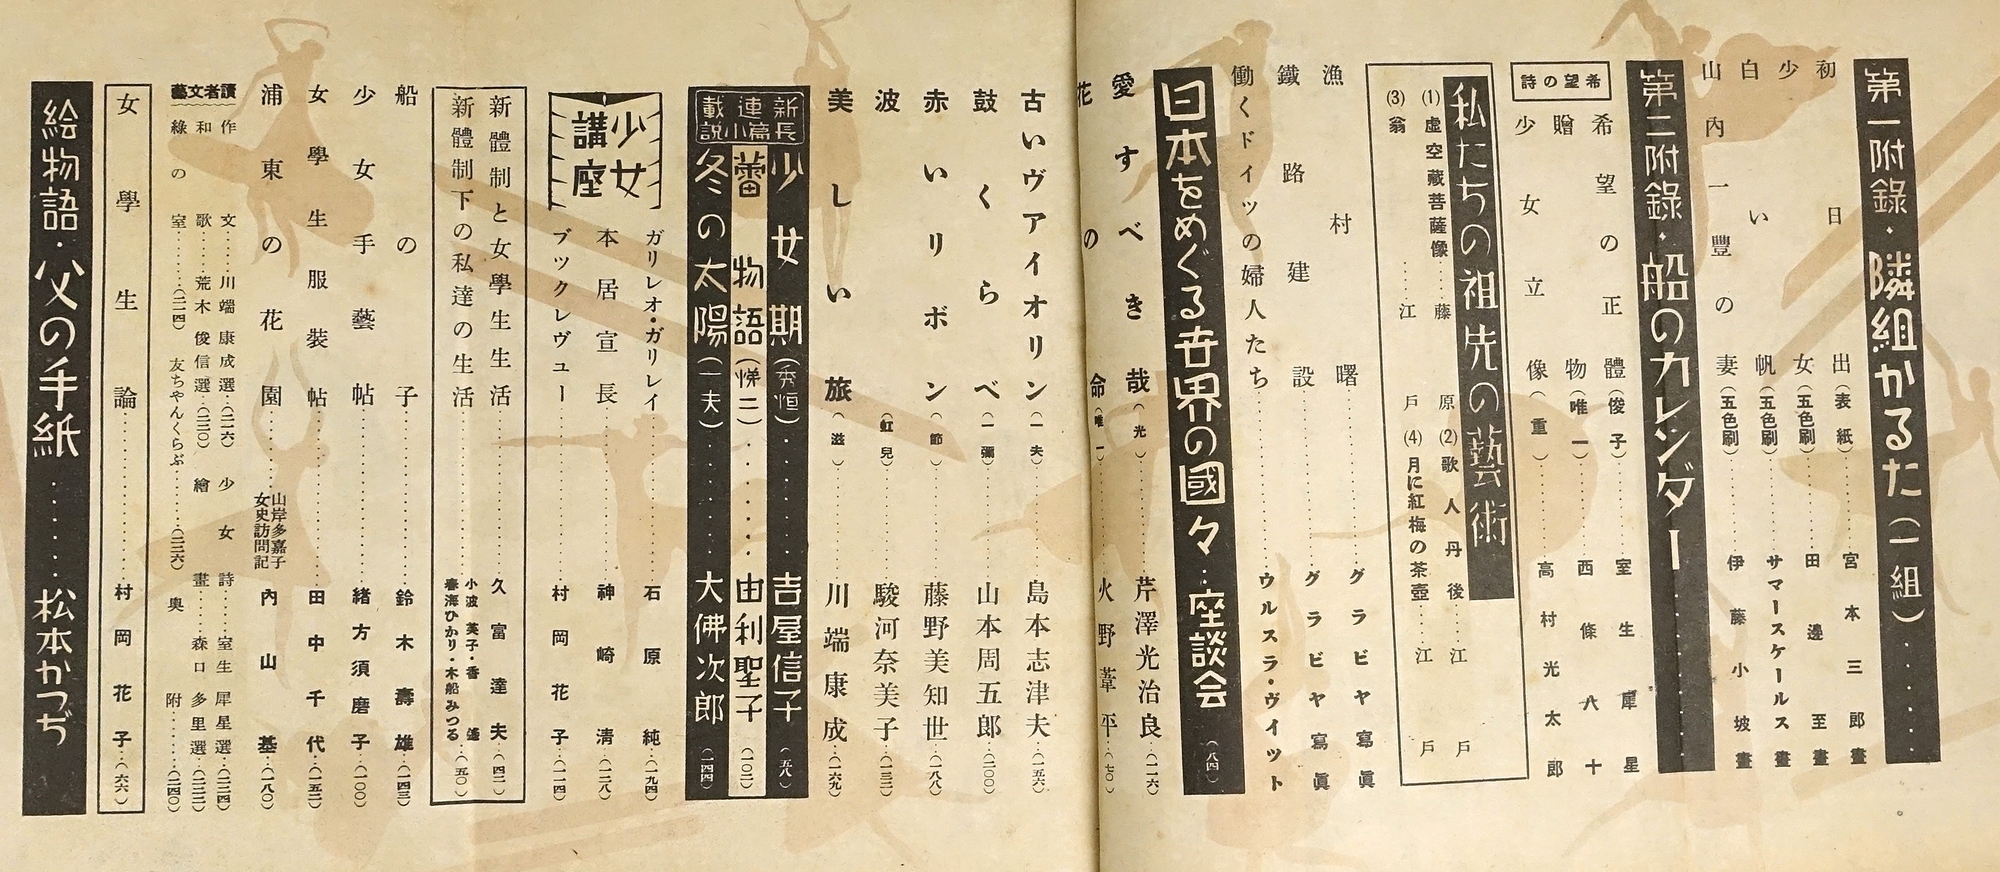 第一附錄・隣組かるた(一組)……
初日出(表紙)……宮本三郎畫
少女(五色刷)……田邊至畫
白い帆(五色刷)……サマースケールス畫
山內一豐の妻(五色刷)……伊藤小坡畫
第二附錄・船のカレンダー
希望の詩
希望の正體(俊子)……室生犀星
贈物(唯一)……西條八十
少女立像(重)……高村光太郎
私たちの祖先の藝術
(1)虛空藏菩薩像……藤原 (2)歌人丹後……江戶
(3)翁……江戶 (4)月に紅梅の茶壺……江戶
漁村曙……グラビヤ寫眞
鐵路建設……グラビヤ寫眞
働くドイツの婦人たち……ウルスラ・ヴイツト
日本をめぐる世界の國々‥座談会(八四)
愛すべき哉(光)……芹澤光治良…(一一六)
花の命(唯一)……火野葦平…(七〇)
古いヴアイオリン(一夫)……島本志津夫…(一五六)
鼓くらべ(一彌)……山本周五郎…(二〇〇)
赤いリボン(節)……藤野美知世…(一八八)
波(虹兒)……駿河奈美子…(一三二)
美しい旅(滋)……川端康成…(一六九)
新長篇連載小說
少女期(秀恒)……吉屋信子(五八)
蕾物語(悌二)……由利聖子(一〇二)
冬の太陽(一夫)……大佛次郎(一四四)
少女講座
ガリレオ・ガリレイ……石原純…(一九四)
本居宣長……神崎清…(一二八)
ブックレヴュー……村岡花子…(一一四)
新體制と女學生生活……久富達夫…(四二)
新體制下の私達の生活……小波英子・香 春海ひかり・木船みつる…(五〇)
船の子……鈴木壽雄…(一四三)
少女手藝帖……緒方須磨子…(一〇〇)
女學生服裝帖……田中千代…(一五二)
浦東の花園……山岸多嘉子女史訪問記 內山基…(一八〇)
讀者文藝
作文……川端康成選…(二一六) 少女詩……室生犀星選…(二二四)
和歌……荒木俊信選…(二二〇) 繪畫……森口多里選…(二二二)
綠の室……(二一四) 友ちやんくらぶ……(二二六) 奧附……(二四〇)
女學生論……村岡花子…(六六)
絵物語・父の手紙……松本かつぢ